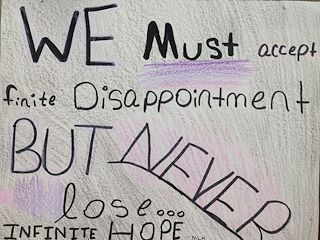 WE Must accept
finite Disappointment
BUT NEVER
lose...
INFINITE HOPE -MLK